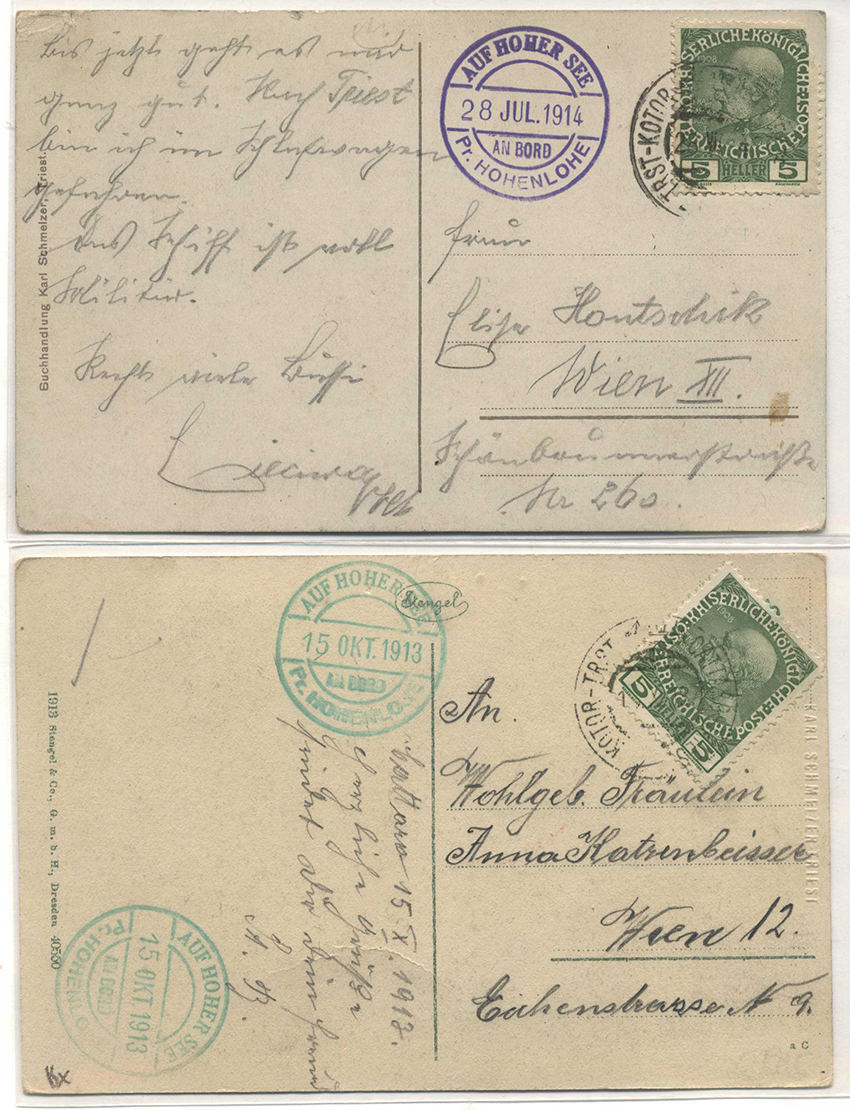 Bis jetzt geht es mir
ganz gut. Nach Triest
bin ich im Schlafwagen
gefahren.
Das Schiff ist voll
Militär.
Recht viele Bussi
Buchhandlung Karl Schmelzer, Triest.
AUF HOHER SEE
28 JUL. 1914
AN BORD
Pr. HOHENLOHE
TRST-KOTOR
KAISERLICHEKÖNIGLICHE
ÖSTERREICHISCHEPOST
1908
5 HELLER 5
Frau
Elise Hontschik
Wien XII.
Schönbrunnerstraße
Nr 260.
AUF HOHER SEE
15 OKT. 1913
AN BORD
Pr. HOHENLOHE
Stengel
KOTOR-TRST
KAISERLICHEKÖNIGLICHE
ÖSTERREICHISCHEPOST
1908
5 5
KARL SCHMELZER TRIEST
1913 Stengel & Co., G. m. b. H., Dresden 40550
Cattaro 15. X. 1913.
Herzliche Grüße
sendet Dir Dein Freund
An.
Wohlgeb. Fräulein
Anna Katzenbeisser
Wien 12.
Eichenstrasse N 9.
AUF HOHER SEE
15 OKT. 1913
AN BORD
Pr. HOHENLO
a C